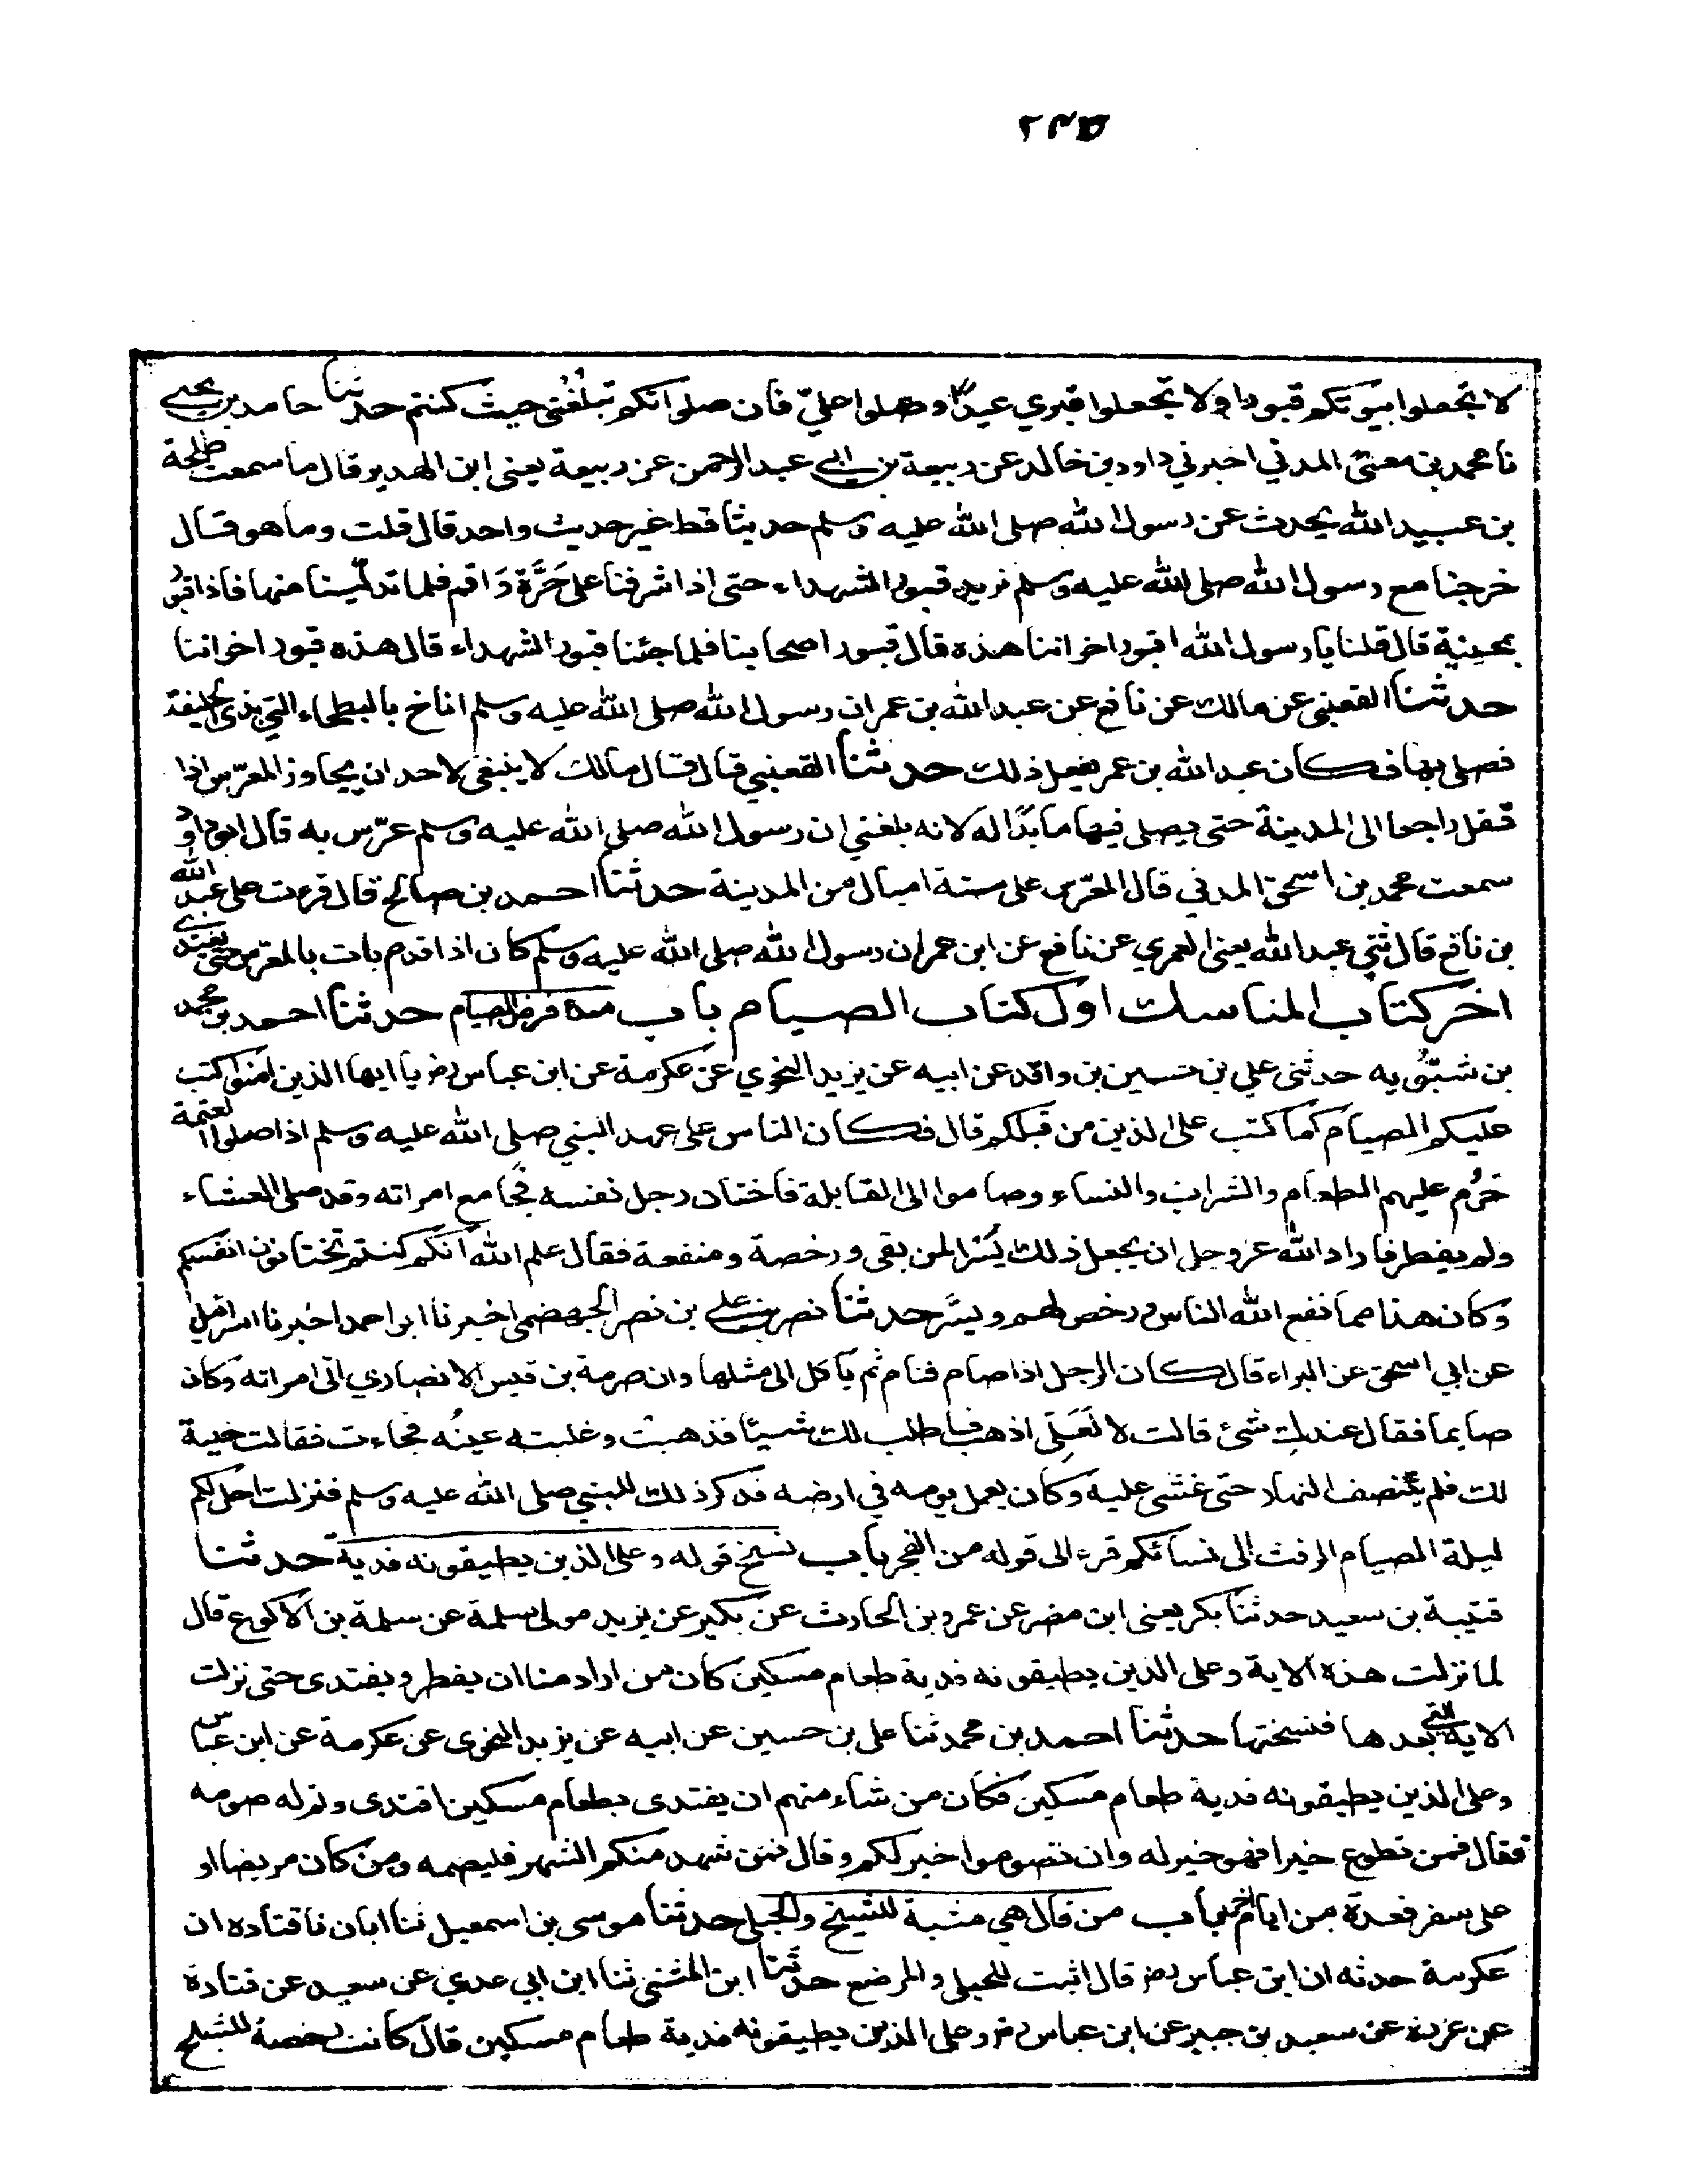 ٢٣٥
لا تجعلوا بيوتكم قبورا ولا تجعلوا قبري عيدا وصلوا عليّ فان صلواتكم تبلغني حيث كنتم حدثنا حامد بن يحيى
نا محمد بن معن المدني اخبرني داود بن خالد عن ربيعة بن ابي عبد الرحمن عن ربيعة يعنى ابن الهدير قال ما سمعت طلحة
بن عبيد الله يحدث عن رسول الله صلى الله عليه وسلم حديثا قط غير حديث واحد قال قلت وما هو قال
خرجنا مع رسول الله صلى الله عليه وسلم نريد قبور الشهداء حتى اذا شرفنا على حَرَّة وَاقم فلما تدلّينا منها فاذا قبور
بمحنية قال قلنا يا رسول الله اقبور اخواننا هذه قال قبور اصحابنا فلما جئنا قبور الشهداء قال هذه قبور اخواننا
حدثنا القعنبى عن مالك عن نافع عن عبد الله بن عمر ان رسول الله صلى الله عليه وسلم اناخ بالبطحاء التي بذى الحليفة
فصلى بها فكان عبد الله بن عمر يفعل ذلك حدثنا القعنبي قال قال مالك لا ينبغى لاحد ان يجاوز المعرّس اذا
قفل راجعا الى المدينة حتى يصلى فيها ما بدا له لانه بلغني ان رسول الله صلى الله عليه وسلم عرّس به قال ابو داود
سمعت محمد بن اسحق المدني قال المعرّس على ستة اميال من المدينة حدثنا احمد بن صالح قال قرءت على عبد الله
بن نافع قال ثني عبد الله يعنى العمري عن نافع عن ابن عمر ان رسول الله صلى الله عليه وسلم كان اذا قدم بات بالمعرس حتى يغتدي
اخر كتاب المناسك اول كتاب الصيام باب مبدء فرض الصيام حدثنا احمد بن محمد
بن شبّويه حدثنى علي بن حسين بن واقد عن ابيه عن يزيد النحوي عن عكرمة عن ابن عباس رض يا ايها الذين امنوا كتب
عليكم الصيام كما كتب على الذين من قبلكم قال فكان الناس على عهد النبي صلى الله عليه وسلم اذا صلوا العتمة
حَرُم عليهم الطعام والشراب والنساء وصاموا الى القابلة فاختان رجل نفسه فجامع امراته وقد صلى العشاء
ولم يفطر فاراد الله عز وجل ان يجعل ذلك يُسْرا لمن بقى ورخصة ومنفعة فقال علم الله انكم كنتم تختانون انفسكم
وكان هذا مما نفع الله الناس ورخص لهم ويسَّر حدثنا نصر بن على بن نصر الجهضمى اخبرنا ابو احمد اخبرنا اسرائيل
عن ابي اسحق عن البراء قال كان الرجل اذا صام فنام ثم ياكل الى مثلها وان صرمة بن قيس الانصاري اتى امراته وكان
صايما فقال عندك شئ قالت لا لَعَلِّى اذهب فاطلب لك شيئا فذهبت وغلبته عينُه فجاءت فقالت خيبة
لك فلم ينتصف النهار حتى غشى عليه وكان يعمل يومه في ارضه فذكر ذلك للنبي صلى الله عليه وسلم فنزلت احل لكم
ليلة الصيام الرفث الى نسائكم قرء الى قوله من الفجر باب نسخ قوله وعلى الذين يطيقونه فدية حدثنا
قتيبة بن سعيد حدثنا بكر يعنى ابن مضر عن عمرو بن الحارث عن بكير عن يزيد مولى سلمة عن سلمة بن الاكوع قال
لما نزلت هذه الاية وعلى الذين يطيقونه فدية طعام مسكين كان من اراد منا ان يفطر ويفتدى حتى نزلت
الاية التي بعدها فنسختها حدثنا احمد بن محمد ثنا على بن حسين عن ابيه عن يزيد النحوى عن عكرمة عن ابن عباس
وعلى الذين يطيقونه فدية طعام مسكين فكان من شاء منهم ان يفتدى بطعام مسكين افتدى وتم له صومه
فقال فمن تطوع خيرا فهو خير له وان تصوموا خير لكم وقال فمن شهد منكم الشهر فليصمه ومن كان مريضا او
على سفر فعدة من ايام اخر باب من قال هي مثبتة للشيخ والحبلى حدثنا موسى بن اسمعيل ثنا ابان نا قتاده ان
عكرمة حدثه ان ابن عباس رض قال اثبت للحبلى والمرضع حدثنا ابن المثنى ثنا ابن ابي عدي عن سعيد عن قتادة
عن عزرة عن سعيد بن جبير عن ابن عباس رض وعلى الذين يطيقونه فدية طعام مسكين قال كانت رخصة للشيخ